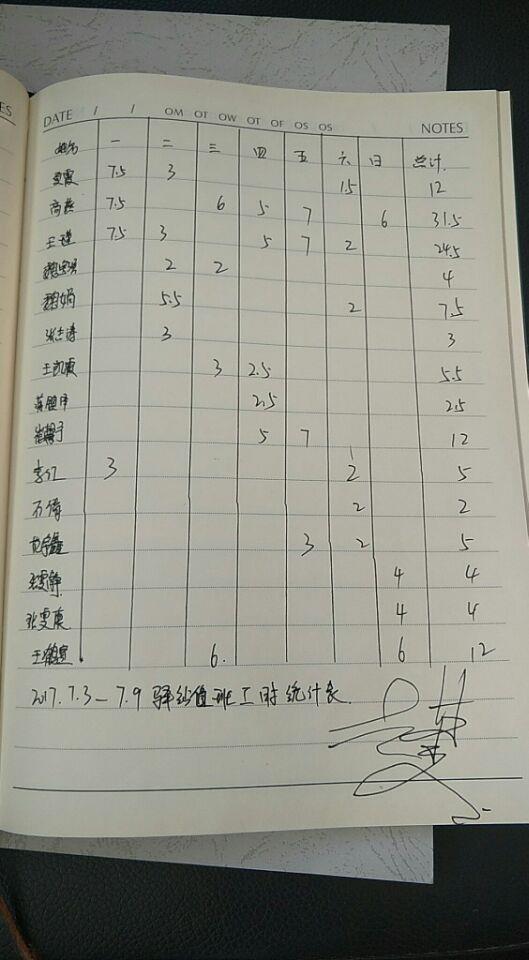 ES
DATE / / OM OT OW OT OF OS OS NOTES
姓名 一 二 三 四 五 六 日 总计.
7.5 3 1.5 12
高燕 7.5 6 5 7 6 31.5
王 7.5 3 5 7 2 24.5
2 2 4
魏娟 5.5 2 7.5
张志涛 3 3
王凯 3 2.5 5.5
2.5 2.5
5 7 12
李红 3 2 5
石伟 2 2
3 2 5
张雯静 4 4
张雯 4 4
王 6. 6 12
2017.7.3 — 7.9 驿站值班工时统计表.